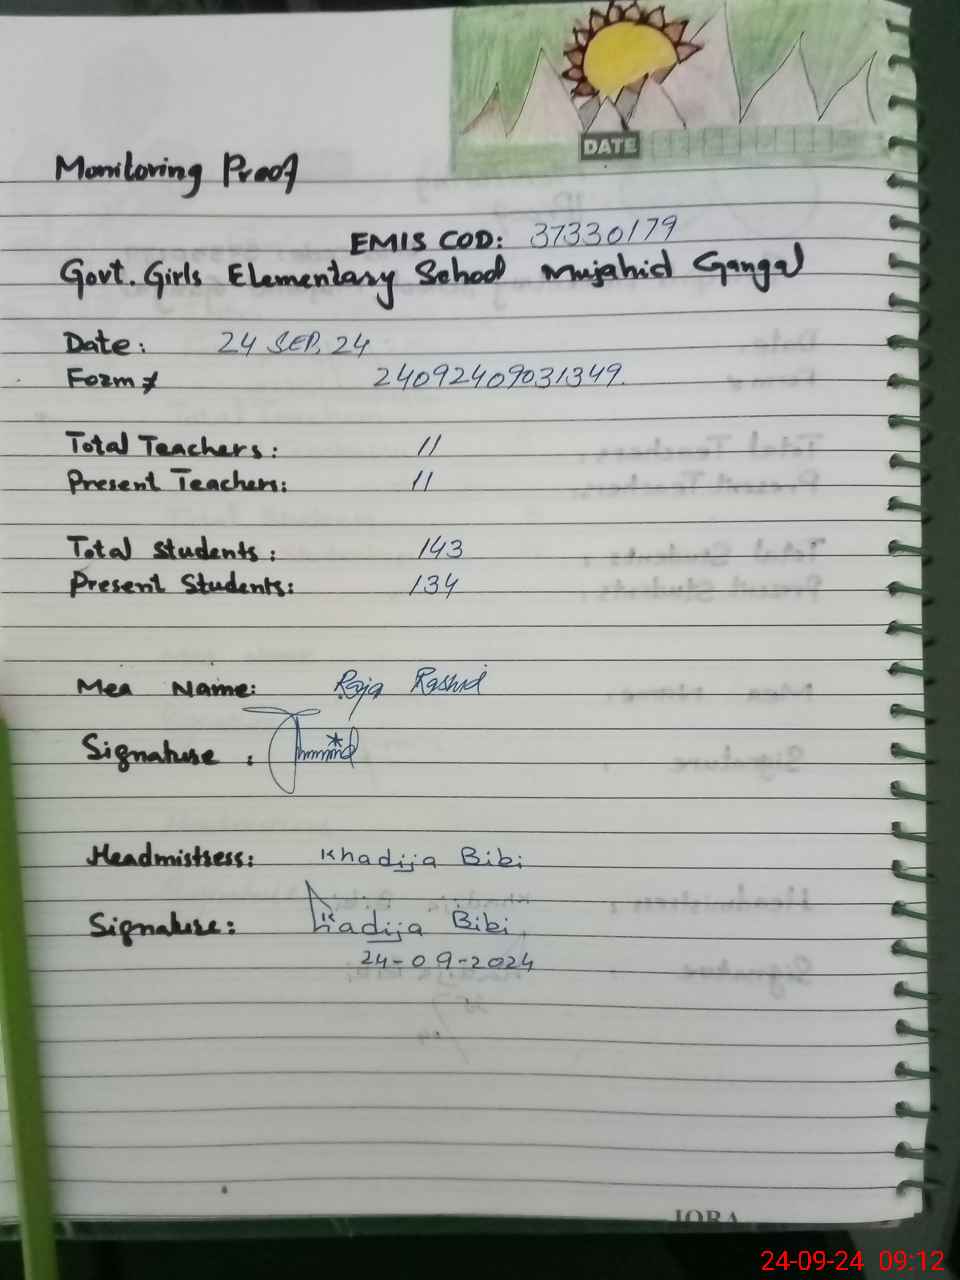 DATE
Monitoring Proof
EMIS COD: 37330179
Govt. Girls Elementary School Mujahid Gangal
Date: 24 SEP, 24
Form # 24092409031349.
Total Teachers: 11
Present Teachers: 11
Total Students: 143
Present Students: 134
Mea Name: Raja Rashid
Signature :
Headmistress: Khadija Bibi
Signature: Khadija Bibi,
24-09-2024
IQRA
24-09-24 09:12